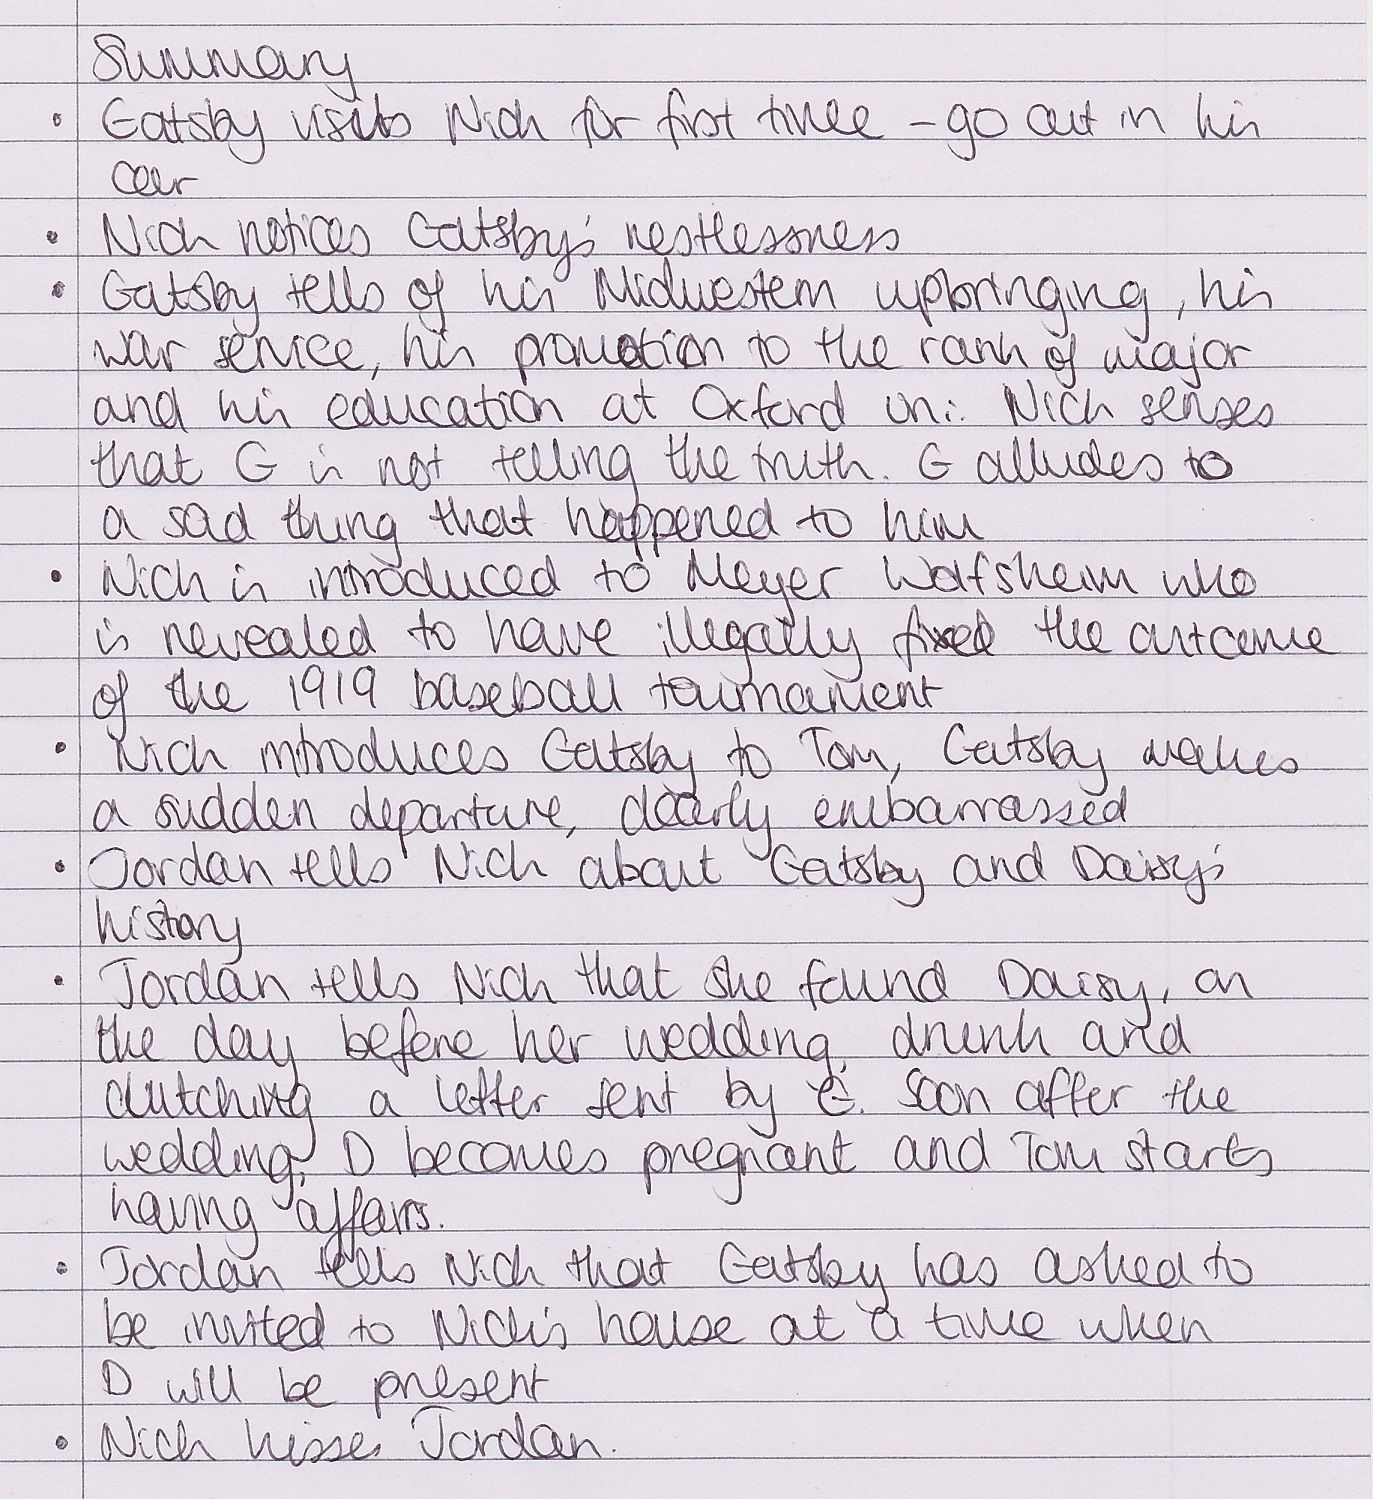 Summary
• Gatsby visits Nick for first time – go out in his
car
• Nick notices Gatsby's restlessness
• Gatsby tells of his Midwestern upbringing, his
war service, his promotion to the rank of major
and his education at Oxford uni. Nick senses
that G is not telling the truth. G alludes to
a sad thing that happened to him
• Nick is introduced to Meyer Wolfsheim who
is revealed to have illegally fixed the outcome
of the 1919 baseball tournament
• Nick introduces Gatsby to Tom, Gatsby makes
a sudden departure, clearly embarrassed
• Jordan tells Nick about Gatsby and Daisy's
history
• Jordan tells Nick that she found Daisy, on
the day before her wedding, drunk and
clutching a letter sent by G. Soon after the
wedding, D becomes pregnant and Tom starts
having affairs.
• Jordan tells Nick that Gatsby has asked to
be invited to Nick's house at a time when
D will be present
• Nick kisses Jordan.